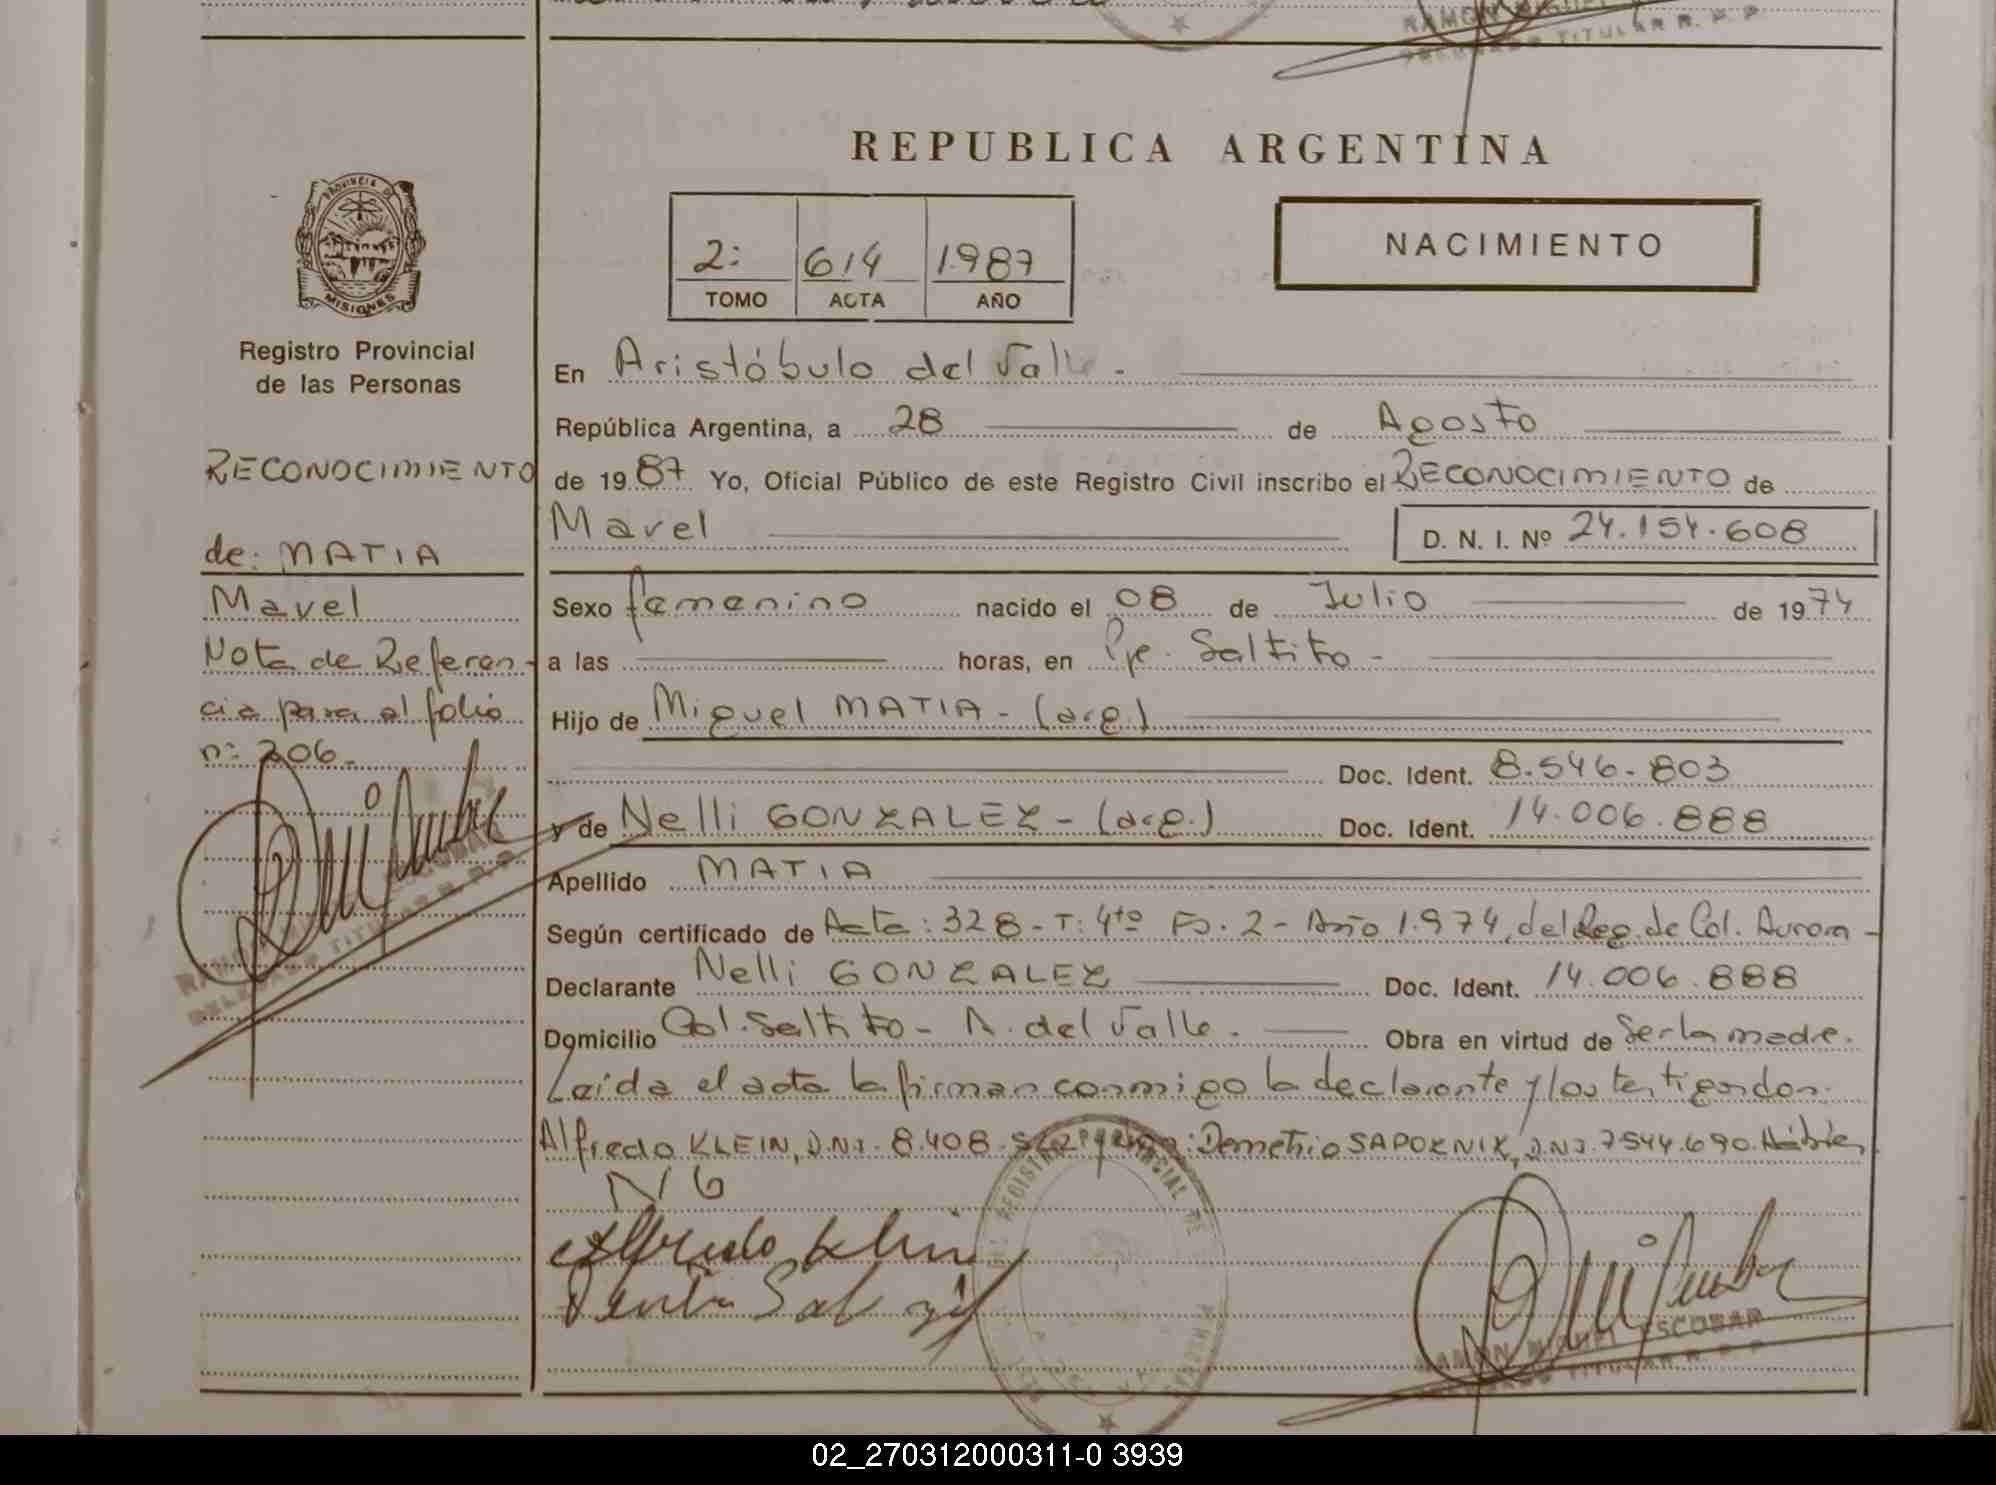 REPUBLICA ARGENTINA
NACIMIENTO
2: 614 1.987
TOMO ACTA AÑO
PROVINCIA DE
MISIONES
Registro Provincial
de las Personas
RECONOCIMIENTO
de: MATIA
Mavel
Nota de Referen-
cia para el folio
n: 206.-
En Aristóbulo del Valle.
República Argentina, a 28 de Agosto
de 1987 Yo, Oficial Público de este Registro Civil inscribo el RECONOCIMIENTO de
Mavel D. N. I. Nº 24.154.608
Sexo femenino nacido el 08 de Julio de 1974
a las horas, en Pje. Saltito-
Hijo de Miguel MATIA-(arg.)
Doc. Ident. 8.546.803
y de Nelli GONZALEZ-(arg.) Doc. Ident. 14.006.888
Apellido MATIA
Según certificado de Acta: 328-T: 4to Fo. 2-Año 1.974, del Reg. de Col. Aurora-
Declarante Nelli GONZALEZ Doc. Ident. 14.006.888
Domicilio Col. Saltito-A. del Valle. Obra en virtud de Ser la madre.
Leida el acta la firman conmigo la declarante y los testigos don:
Alfredo KLEIN, D.N.I. 8.408. Demetrio SAPOZNIK, D.N.I. 7544.690.
N G
Alfredo Klein
REGISTRO PROVINCIAL DE
RAMON MIGUEL ESCOBAR
DELEGADO TITULAR R. P. P.
02_270312000311-0 3939